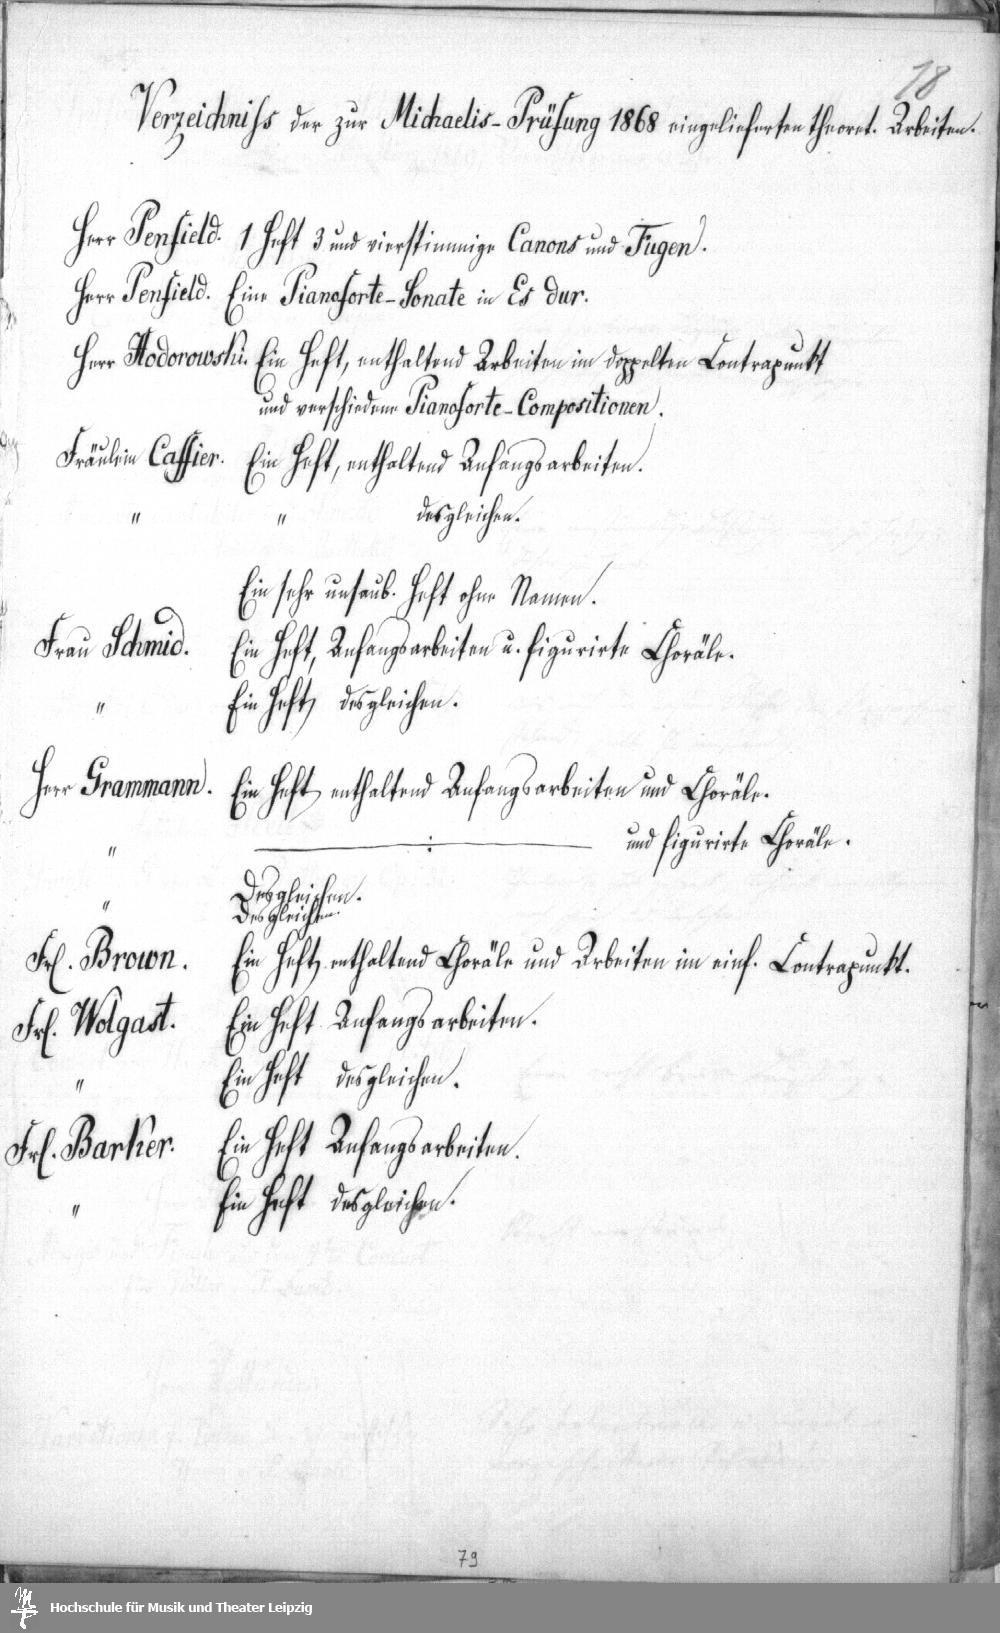 78
Verzeichniss der zur Michaelis-Prüfung 1868 eingelieferten theoret. Arbeiten.
Herr Penfield. 1 Heft 3 und vierstimmige Canons und Fugen.
Herr Penfield. Eine Pianoforte-Sonate in Es dur.
Herr Hodorowski. Ein Heft, enthaltend Arbeiten im doppelten Contrapunkt
und verschiedene Pianoforte-Compositionen.
Fräulein Caffier. Ein Heft, enthaltend Anfangsarbeiten.
" " desgleichen.
Ein sehr unsaub. Heft ohne Namen.
Frau Schmid. Ein Heft, Anfangsarbeiten u. figurirte Choräle.
" Ein Heft, desgleichen.
Herr Grammann. Ein Heft, enthaltend Anfangsarbeiten und Choräle.
" —:— und figurirte Choräle.
" Desgleichen.
Desgleichen.
Frl. Brown. Ein Heft, enthaltend Choräle und Arbeiten im einf. Contrapunkt.
Frl. Wolgast. Ein Heft Anfangsarbeiten.
" Ein Heft desgleichen.
Frl. Barker. Ein Heft Anfangsarbeiten.
" Ein Heft desgleichen.
79
Hochschule für Musik und Theater Leipzig